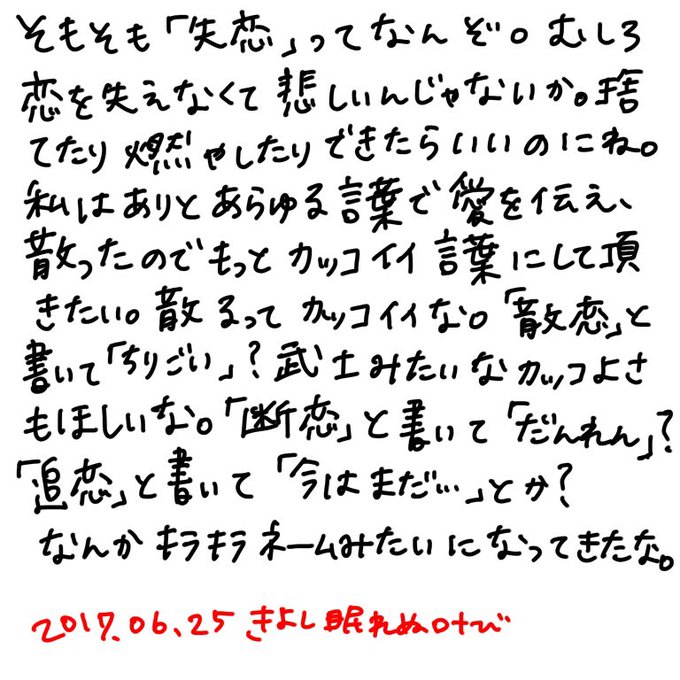 そもそも「失恋」ってなんぞ。むしろ
恋を失えなくて悲しいんじゃないか。捨
てたり燃やしたりできたらいいのにね。
私はありとあらゆる言葉で愛を伝え、
散ったのでもっとカッコイイ言葉にして頂
きたい。散るってカッコイイな。「散恋」と
書いて「ちりごい」?武士みたいなカッコよさ
もほしいな。「断恋」と書いて「だんれん」?
「追恋」と書いて「今はまだ…」とか?
なんかキラキラネームみたいになってきたな。
2017.06.25 きよし眠れぬ叫び